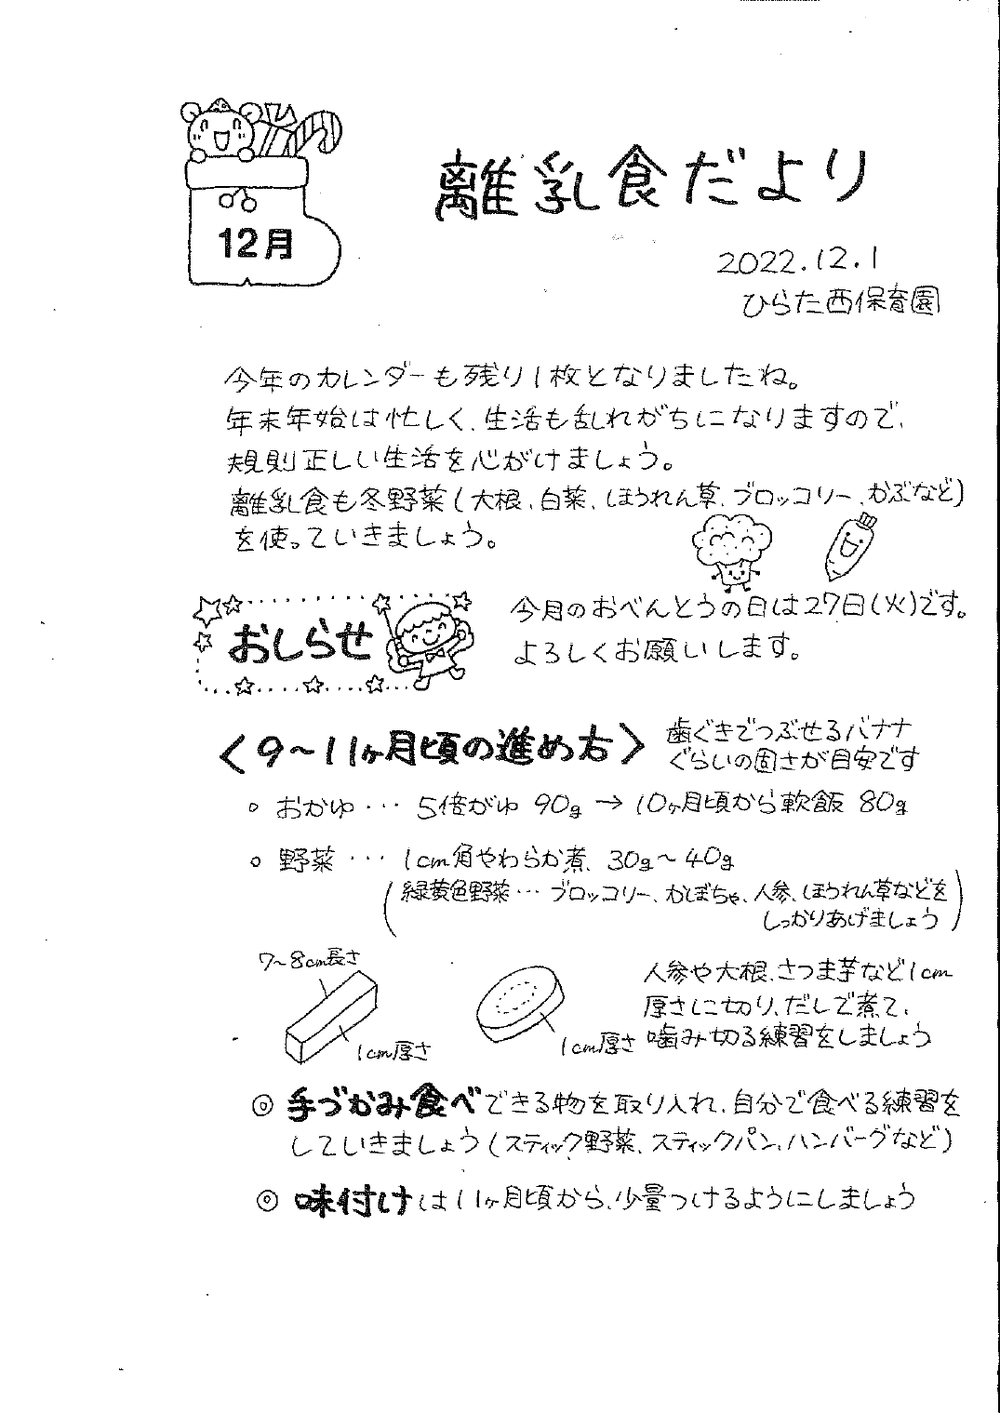 12月
離乳食だより
2022.12.1
ひらた西保育園
今年のカレンダーも残り1枚となりましたね。
年末年始は忙しく、生活も乱れがちになりますので、
規則正しい生活を心がけましょう。
離乳食も冬野菜(大根、白菜、ほうれん草、ブロッコリー、かぶなど)
を使っていきましょう。
おしらせ
今月のおべんとうの日は27日(火)です。
よろしくお願いします。
〈9~11ヶ月頃の進め方〉
歯ぐきでつぶせるバナナ
ぐらいの固さが目安です
。おかゆ… 5倍がゆ 90g→10ヶ月頃から軟飯 80g
。野菜… 1cm角やわらか煮、30g~40g
(緑黄色野菜… ブロッコリー、かぼちゃ、人参、ほうれん草などを
しっかりあげましょう)
7~8cm長さ
1cm厚さ
1cm厚さ
人参や大根、さつま芋など1cm
厚さに切り、だしで煮て、
噛み切る練習をしましょう
◎手づかみ食べできる物を取り入れ、自分で食べる練習を
していきましょう(スティック野菜、スティックパン、ハンバーグなど)
◎味付けは11ヶ月頃から、少量つけるようにしましょう